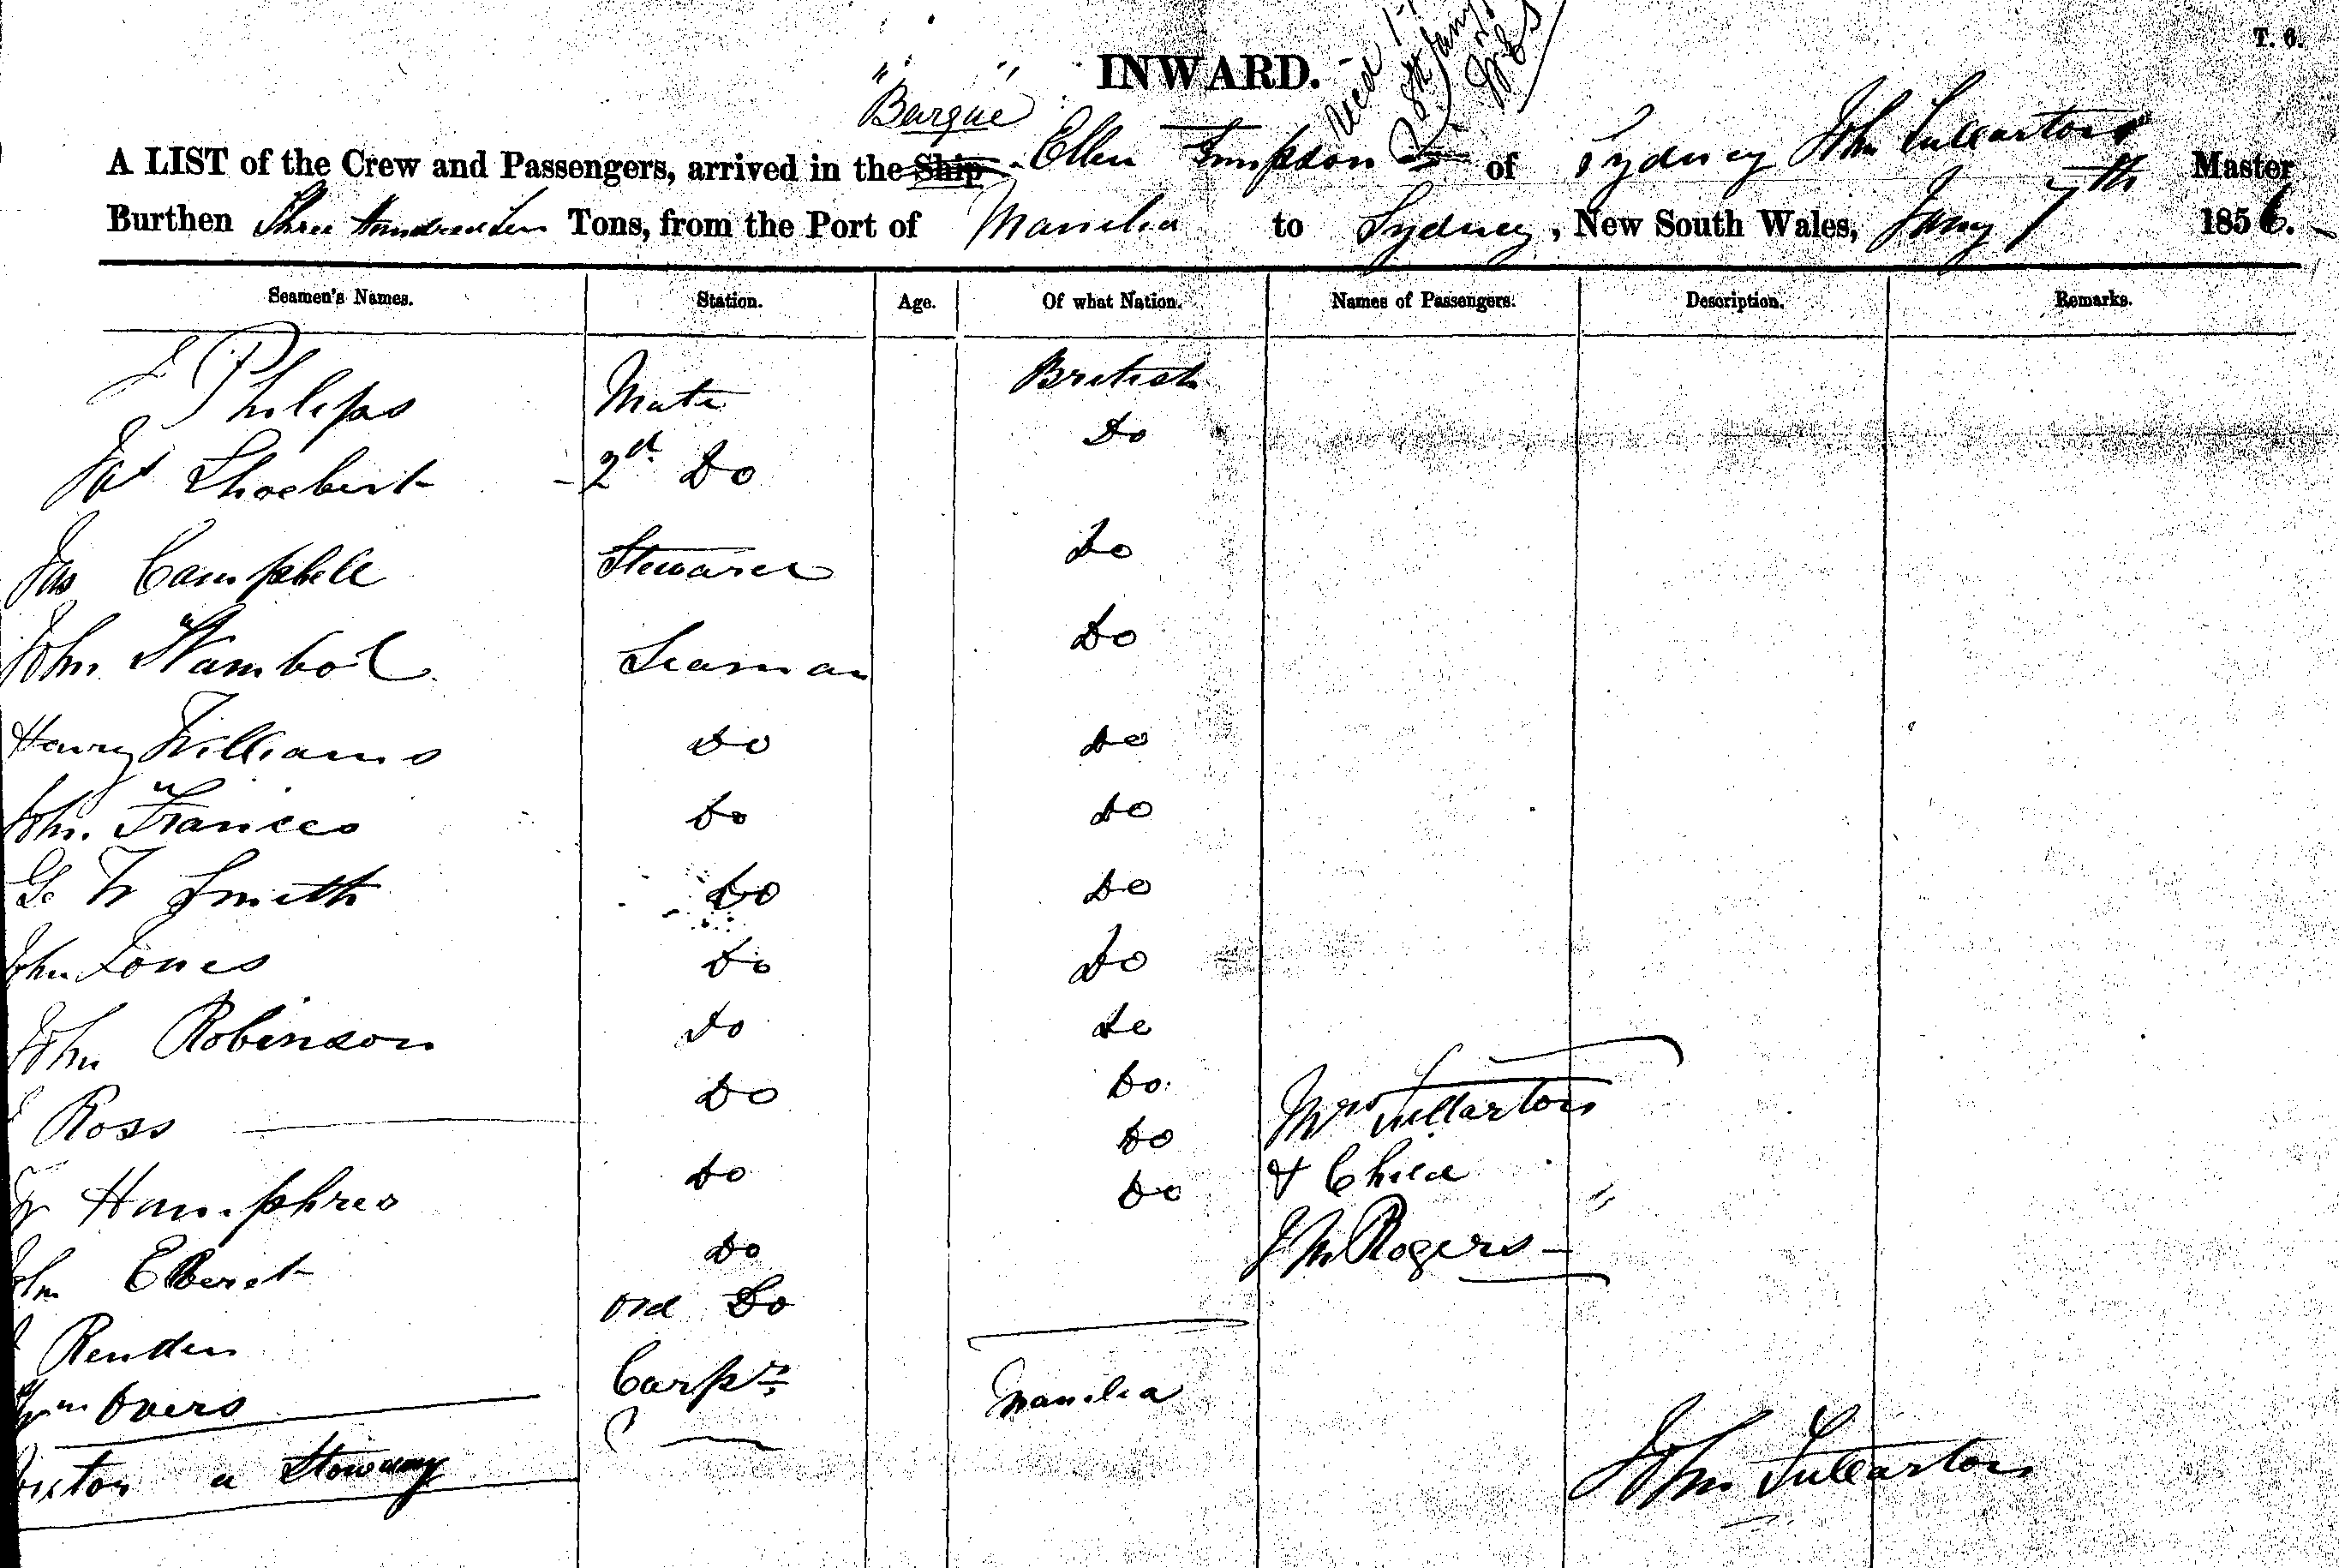 T. 6.
INWARD.
" "
Barque
A LIST of the Crew and Passengers, arrived in the Ship Ellen Simpson of Sydney John Fullarton Master
Burthen Three Hundred Ten Tons, from the Port of Manilla to Sydney, New South Wales, Jany 7th 1856.
Seamen's Names. Station. Age. Of what Nation. Names of Passengers. Description. Remarks.
J Philips Mate British
Jas 2d Do Do
Jas Campbell Steward Do
John Seaman Do
Henry Williams Do Do
John Frances Do Do
Ge W Smith Do Do
John Jones Do Do
John Robinson Do Do
Ross Do Do Mrs Fullarton
W Humphres Do Do & Child "
John Do Do J M Rogers
Ord Do
Wm Overs Carpr Manilla
a Stowaway
John Fullarton